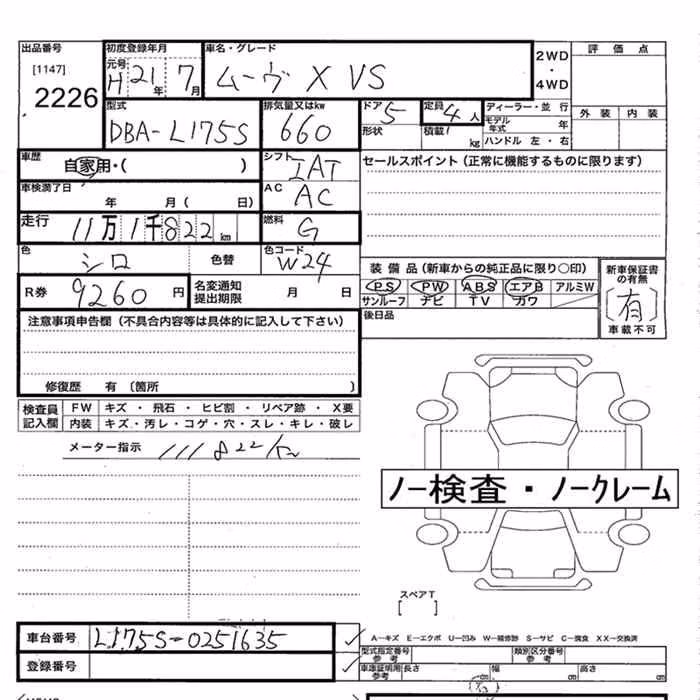 出品番号 初度登録年月 車名・グレード 2WD・4WD 評価点
[1147] 元号 H 21年 7月 ムーヴ X VS
2226 型式 排気量又はkw ドア 5 定員 4人 ディーラー・並行 外装 内装
DBA-L175S 660 形状 積載 kg モデル年式 年
ハンドル 左・右
車歴 自家用・( ) シフト IAT セールスポイント(正常に機能するものに限ります)
車検満了日 年 月( 日) AC AC
走行 11万1千822km 燃料 G
色 シロ 色替 色コード W24 装備品(新車からの純正品に限り○印) 新車保証書の有無
R券 9260円 名変通知提出期限 月 日 PS PW ABS エアB アルミW [有]
サンルーフ ナビ TV カワ 車載不可
注意事項申告欄(不具合内容等は具体的に記入して下さい) 後日品
修復歴 有 〔箇所 〕
検査員記入欄 FW キズ・飛石・ヒビ割・リペア跡・X要
内装 キズ・汚レ・コゲ・穴・スレ・キレ・破レ
メーター指示 111822km
ノー検査・ノークレーム
スペアT
[ ]
車台番号 L175S-0251635 A-キズ E-エクボ U-凹み W-補修跡 S-サビ C-腐食 XX-交換済
登録番号 型式指定番号 参考 類別区分番号 参考
車庫証明用 参考 長さ cm 幅 cm 高さ cm